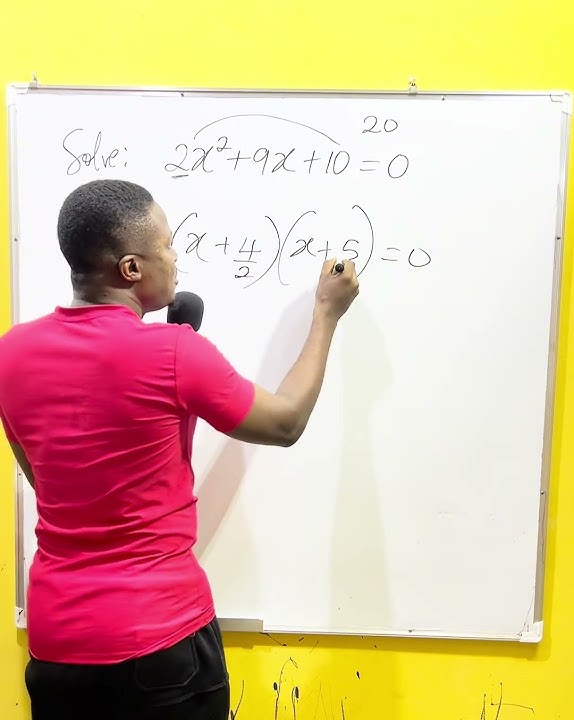 20
Solve: 2x² + 9x + 10 = 0
(x + 4/2)(x + 5) = 0